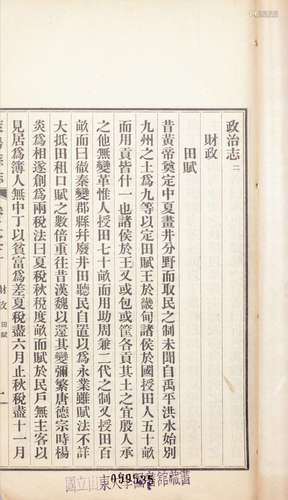 政治志二
財政
田賦
昔黃帝奠定中夏畫井分野而取民之制未聞自禹平洪水始別
九州之土爲九等以定田賦王於畿甸諸侯於國授田人五十畝
而用貢皆什一也諸侯於王又或包或筐各貢其土之宜殷人承
之他無變革惟人授田七十畝而用助周兼二代之制又授田百
畝而曰徹秦變郡縣幷廢井田聽民自置以爲永業雖賦法不詳
大抵田租口賦之數倍重往昔漢魏以還其變彌繁唐德宗時楊
炎爲相遂創爲兩稅法曰夏稅秋稅度畝而賦於民戶無主客以
見居爲簿人無中丁以貧富爲差夏稅盡六月止秋稅盡十一月
財政 田賦
一
國立山東大學圖書館藏書
059535